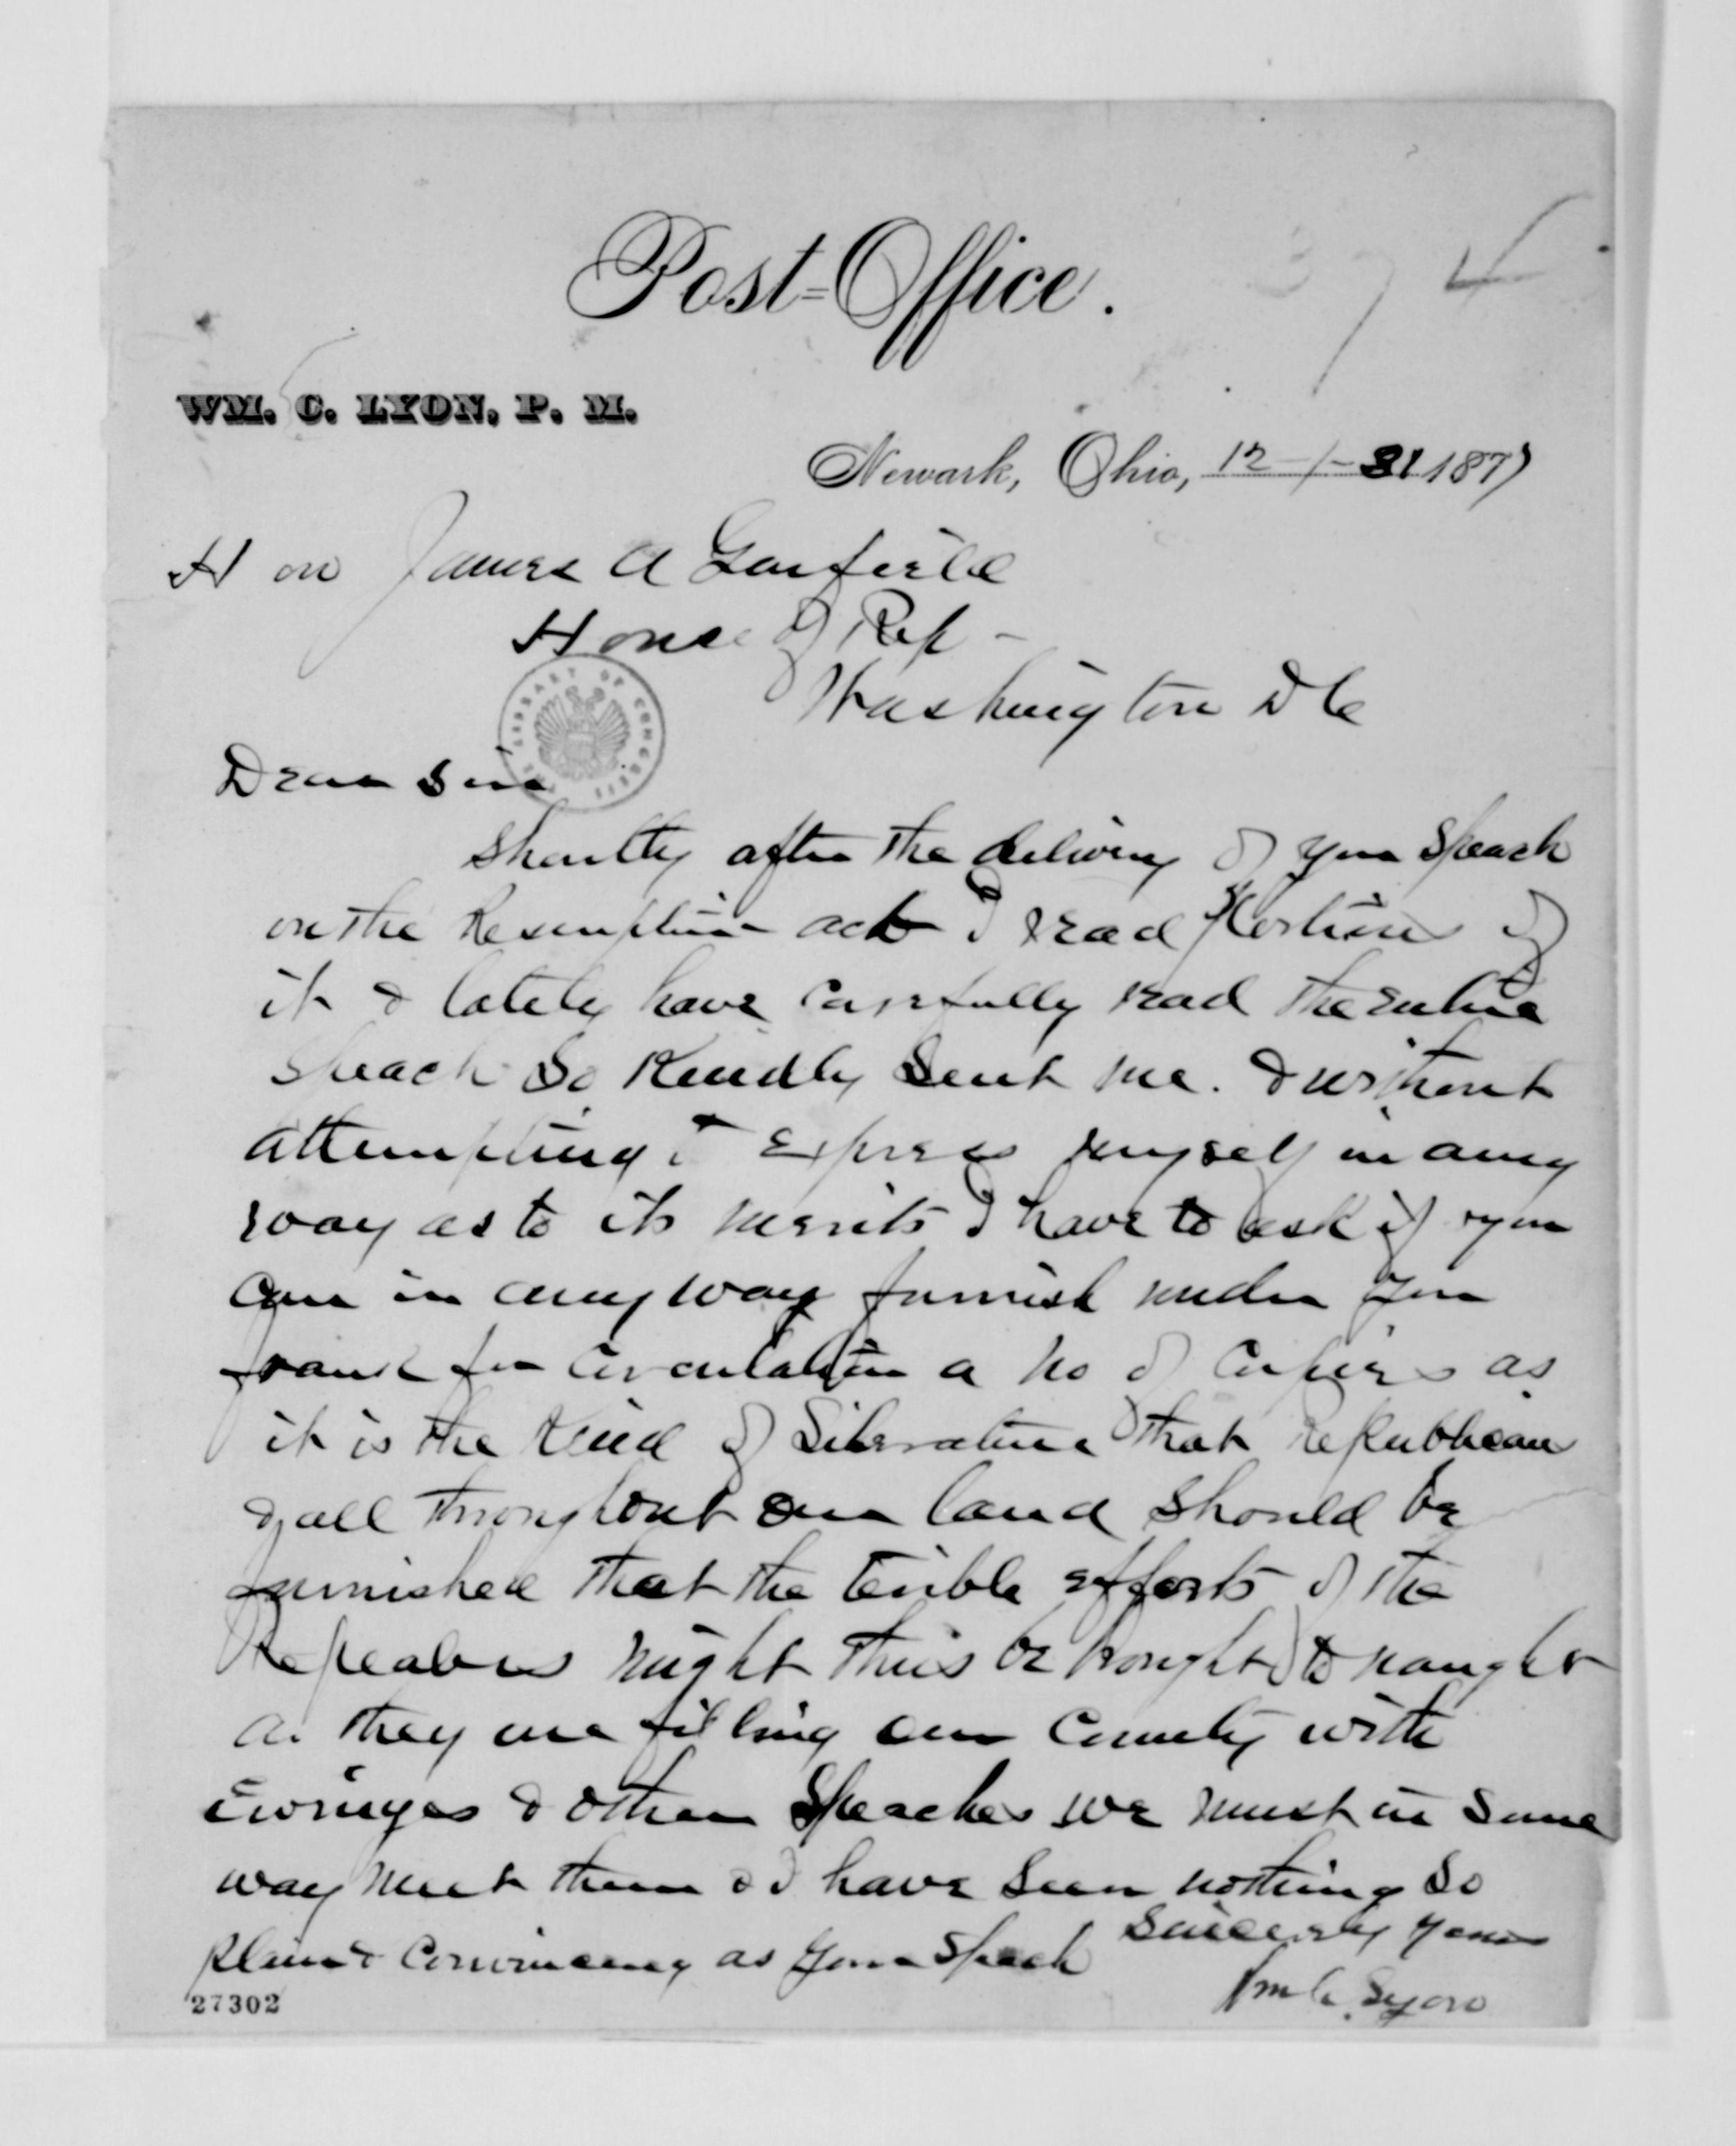 374
Post-Office.
WM. C. LYON, P. M.
Newark, Ohio, 12-/-31 1877
Hon James A Garfield
House of Rep -
Washington D C
THE LIBRARY OF CONGRESS
Dear Sir
Shortly after the delivery of your Speach
on the Resumption act I read Portions of
it & lately have carefully read the entire
Speach So Kindly Sent me. & without
attempting to Express myself in any
way as to its merits I have to ask if you
can in anyway furnish under your
frank for circulation a No of Copies as
it is the Kind of Literature that Republicans
& all throughout our land should be
furnished that the terible efforts of the
Repealers might thus be brought to naught
as they are filling our County with
Ewinges & other Speaches we must in some
way meet them & I have seen nothing So
plain & Convincing as your Speach
Sincerely yours
Wm C. Lyon
27302